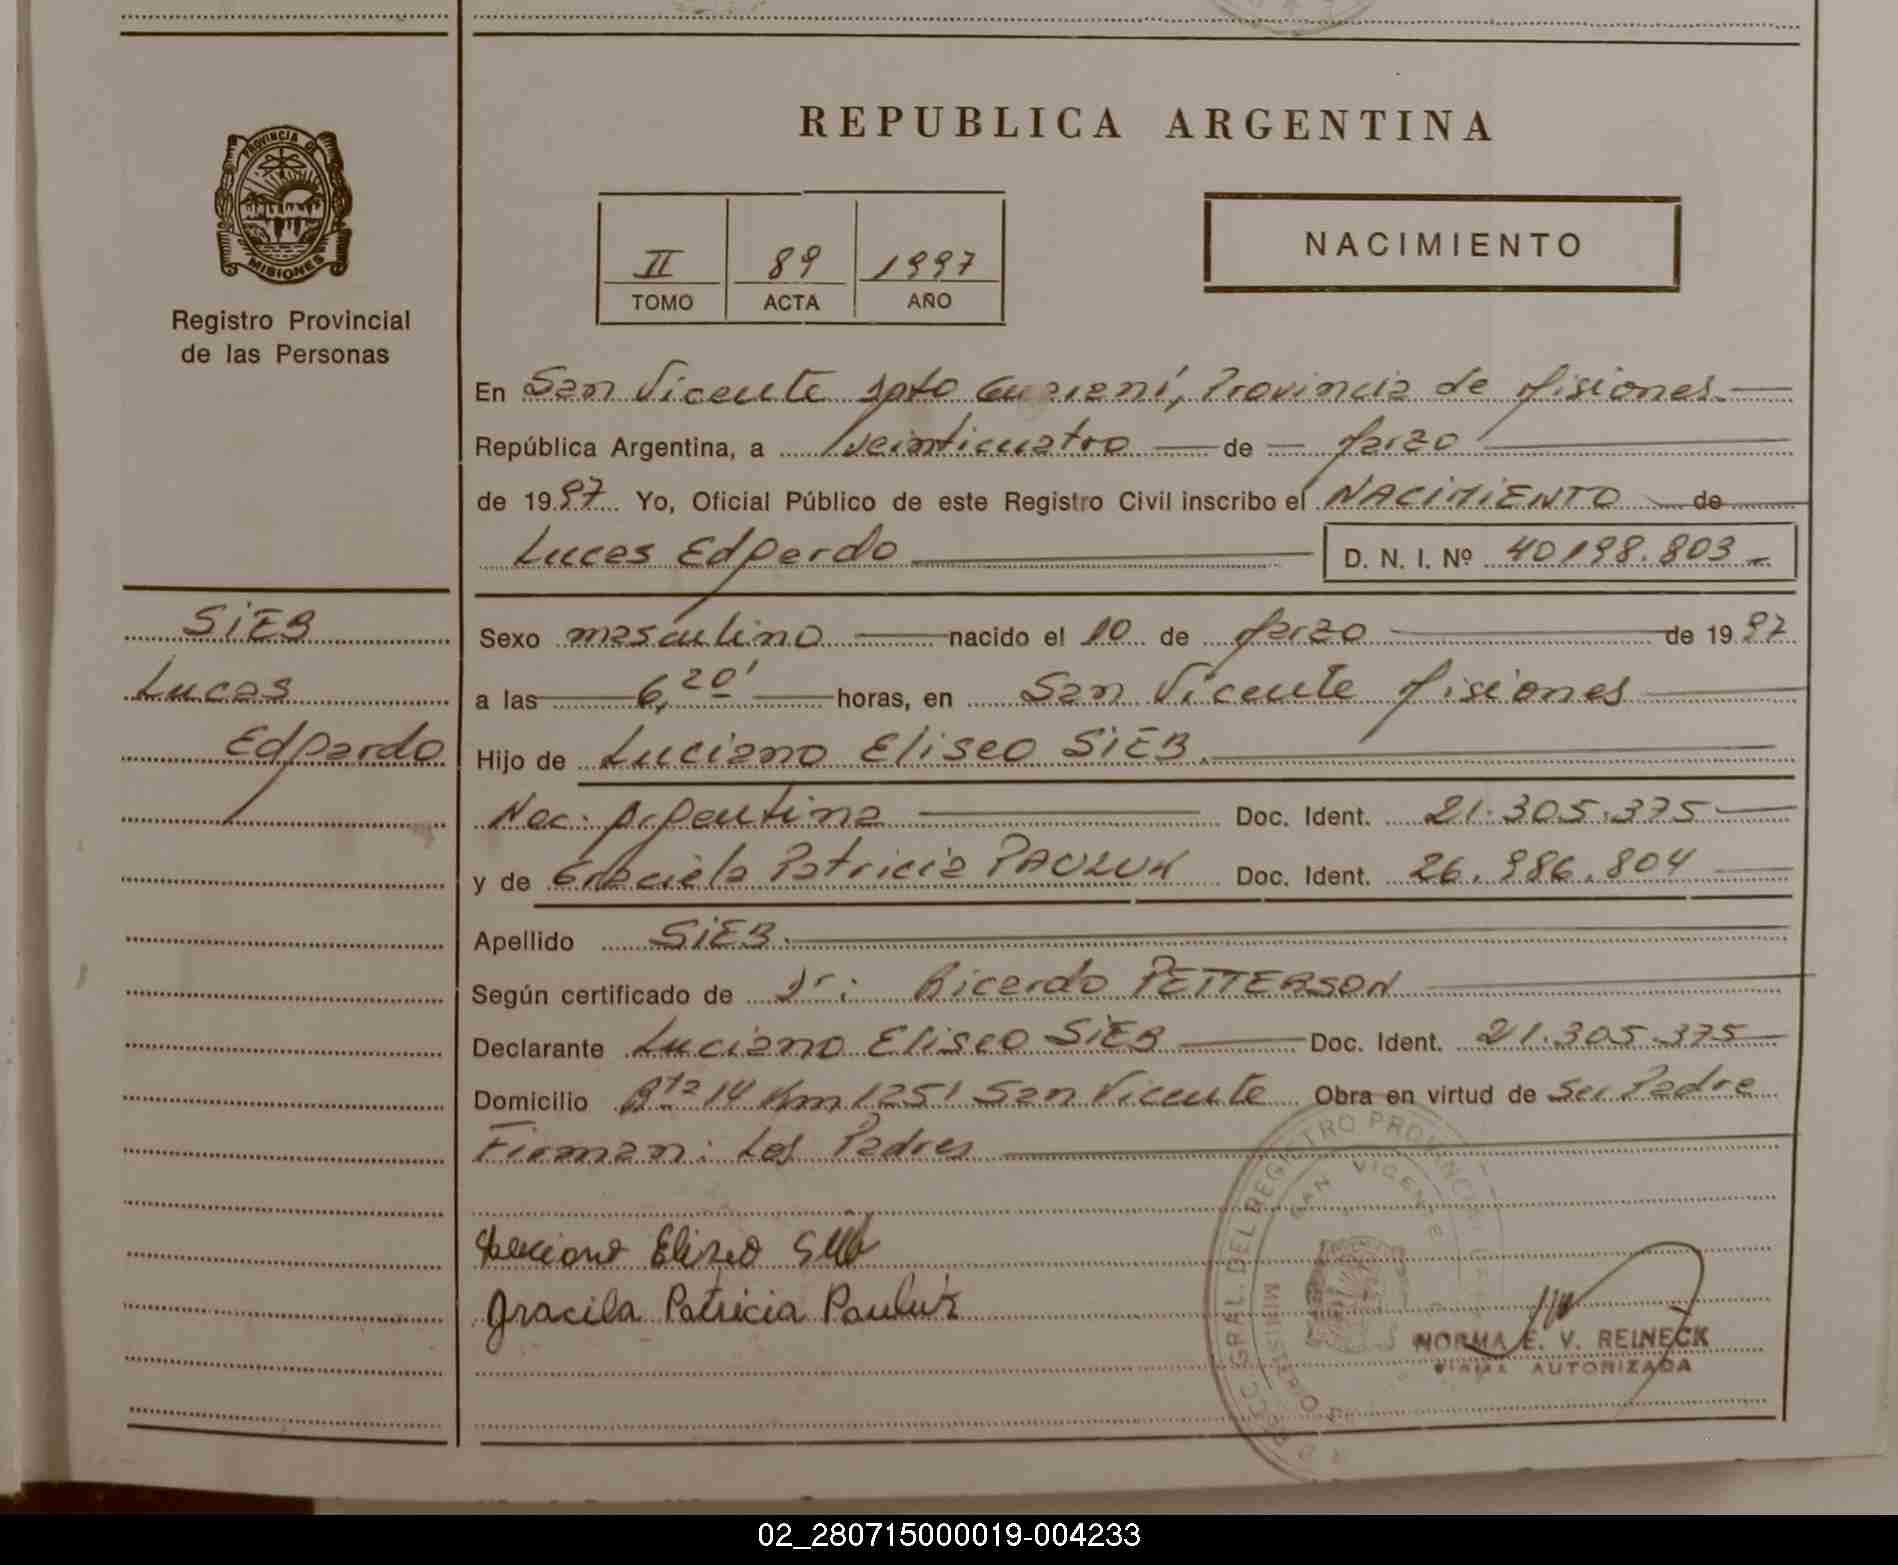 REPUBLICA ARGENTINA
PROVINCIA DE
MISIONES
Registro Provincial
de las Personas
II 89 1997
TOMO ACTA AÑO
NACIMIENTO
En San Vicente Dpto Guaraní, Provincia de Misiones
República Argentina, a veinticuatro de Marzo
de 1997 Yo, Oficial Público de este Registro Civil inscribo el NACIMIENTO de
Lucas Edgardo D. N. I. Nº 40198.803
SiEB
Lucas
Edgardo
Sexo masculino nacido el 10 de Marzo de 1997
a las 6,20' horas, en San Vicente Misiones
Hijo de Luciano Eliseo SiEB.
Nac. Argentina Doc. Ident. 21.305.375
y de Graciela Patricia PAULUK Doc. Ident. 26.986.804
Apellido SiEB.
Según certificado de Dr: Ricardo PETTERSON
Declarante Luciano Eliseo SiEB Doc. Ident. 21.305.375
Domicilio Rta 14 Km 1251 San Vicente Obra en virtud de Ser Padre
Firman: Los Padres
Luciano Eliseo Sieb
Gracila Patricia Pauluk
GRAL. DEL REGISTRO PROVINCIAL
SAN VICENTE
MISIONES
NORMA E. V. REINECK
FIRMA AUTORIZADA
02_280715000019-004233